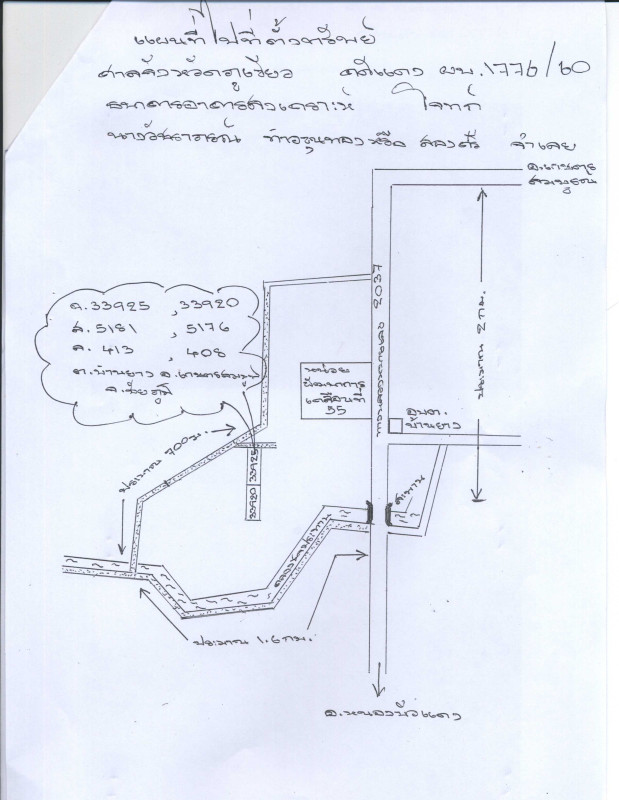 แผนที่ไปที่ตั้งทรัพย์
ศาลจังหวัดภูเขียว คดีแดง ผบ.1776/60
ธนาคารอาคารสงเคราะห์ โจทก์
จำเลย
อ.เกษตร
สมบูรณ์
ด.33925 ,33920
ส.5181 ,5176
ล. 413 , 408
ต.บ้านยาง อ.เกษตรสมบูรณ์
จ.ชัยภูมิ
ทางหลวงหมายเลข 2037
ประมาณ 2 กม.
หน่วย
พัฒนาการ
เคลื่อนที่
55
อบต.
บ้านยาง
ประมาณ 700 ม.
33920 33925
คลองชลประทาน
ประมาณ 1.6 กม.
อ.หนองบัวแดง